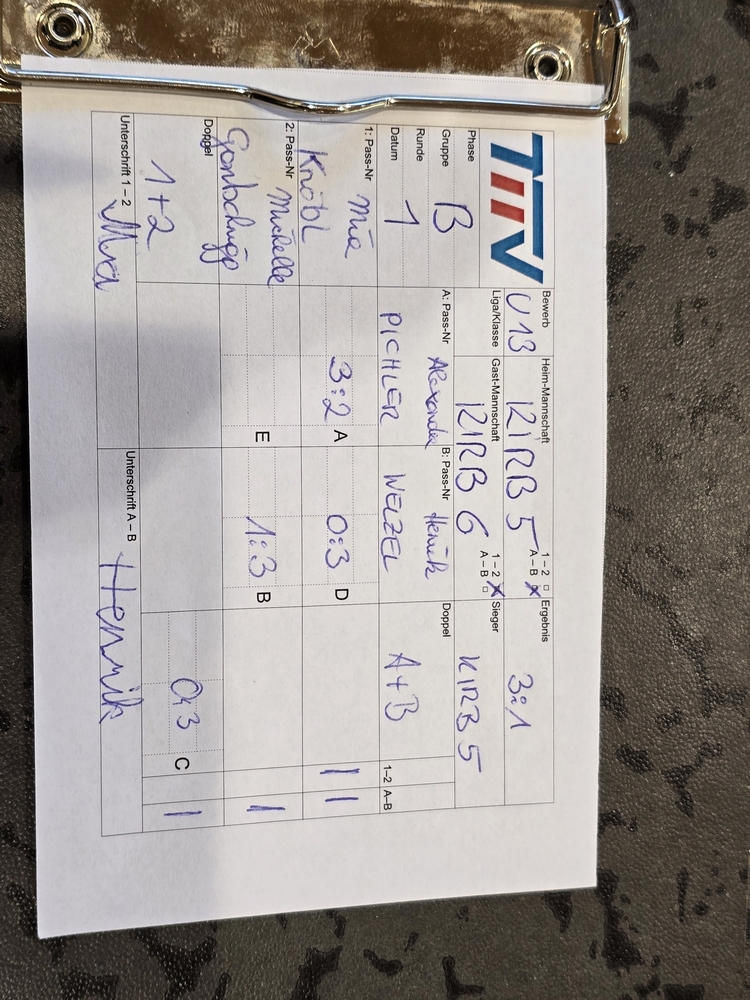 TTTV
Bewerb
U13
Heim-Mannschaft
KIRB 5
1 – 2
A – B X
Ergebnis
3:1
Phase
Liga/Klasse
Gast-Mannschaft
KIRB 6
1 – 2 X
A – B
Sieger
KIRB 5
Gruppe B
Runde
Datum 1
A: Pass-Nr Alexander
PICHLER
B: Pass-Nr Henrik
WELZEL
Doppel
A+B
1–2 A–B
1: Pass-Nr Mia
Knöbl
3:2 A
0:3 D
I I
2: Pass-Nr Michelle
E
1:3 B
I
Doppel
1+2
0:3 C
I
Unterschrift 1 – 2 Mia
Unterschrift A – B Henrik